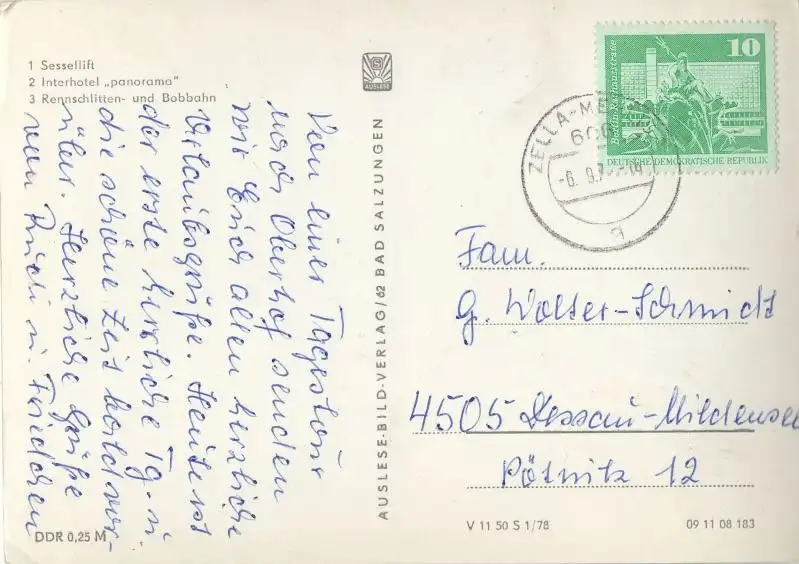 1 Sessellift
2 Interhotel „panorama"
3 Rennschlitten- und Bobbahn
AUSLESE
Von einer Tagestour
nach Oberhof senden
wir Euch allen herzliche
Urlaubsgrüße. Heute ist
der erste herrliche Tg. u.
die schöne Zeit bald vor-
über. Herzliche Grüße
von Rudi u. Friedchen
DDR 0,25 M
AUSLESE-BILD-VERLAG/62 BAD SALZUNGEN
10
Berlin, Rathausstrasse
DEUTSCHE DEMOKRATISCHE REPUBLIK
ZELLA-ME
Fam.
G. Wolter-Schmidt
4505 Dessau-Mildensee
Pötnitz 12
V 11 50 S 1/78
09 11 08 183